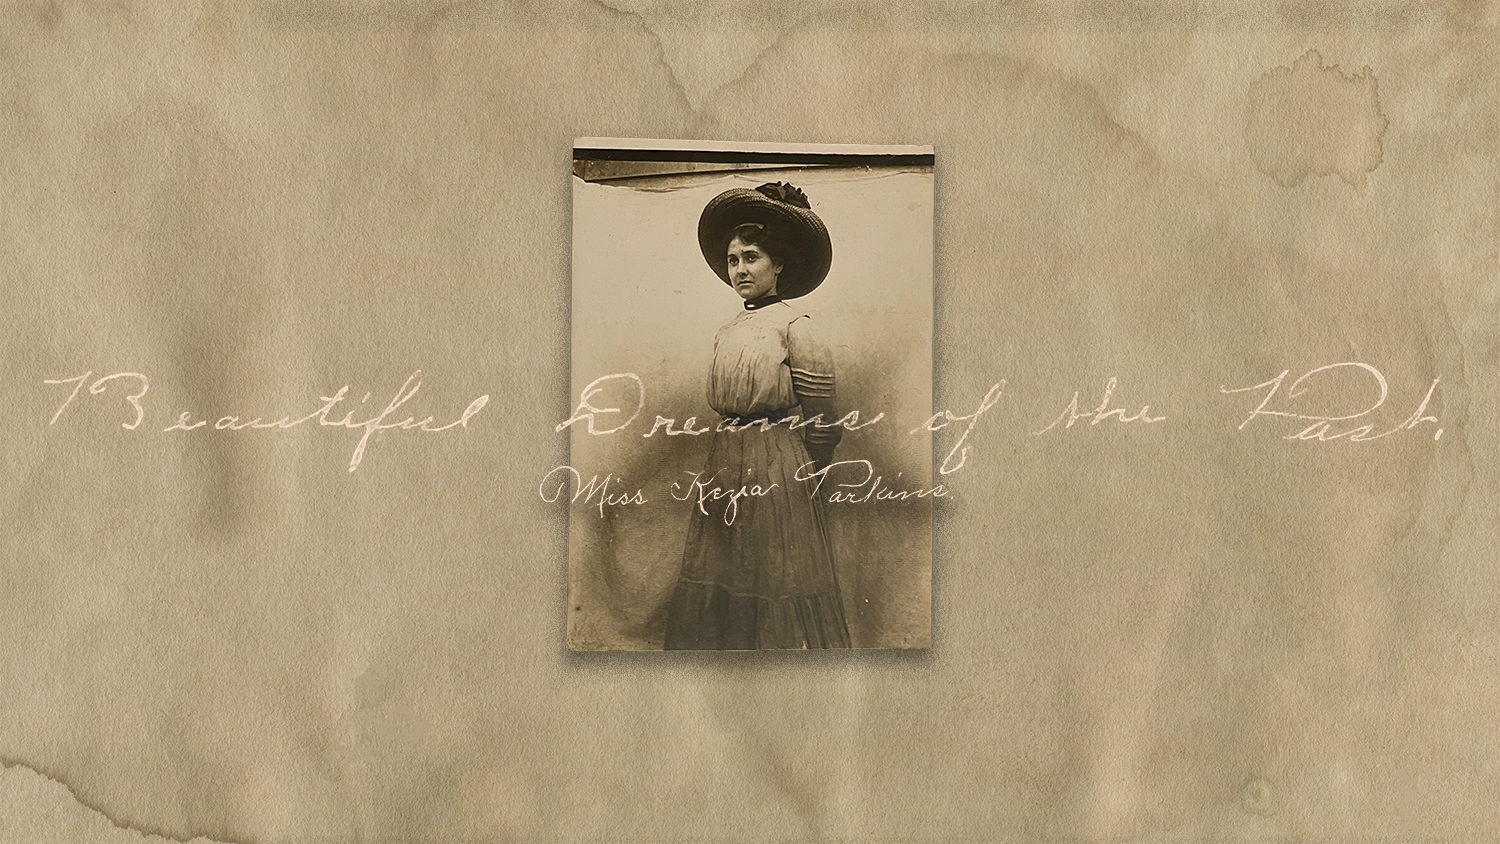 Beautiful Dreams of the Past.
Miss Kezia Parkins.